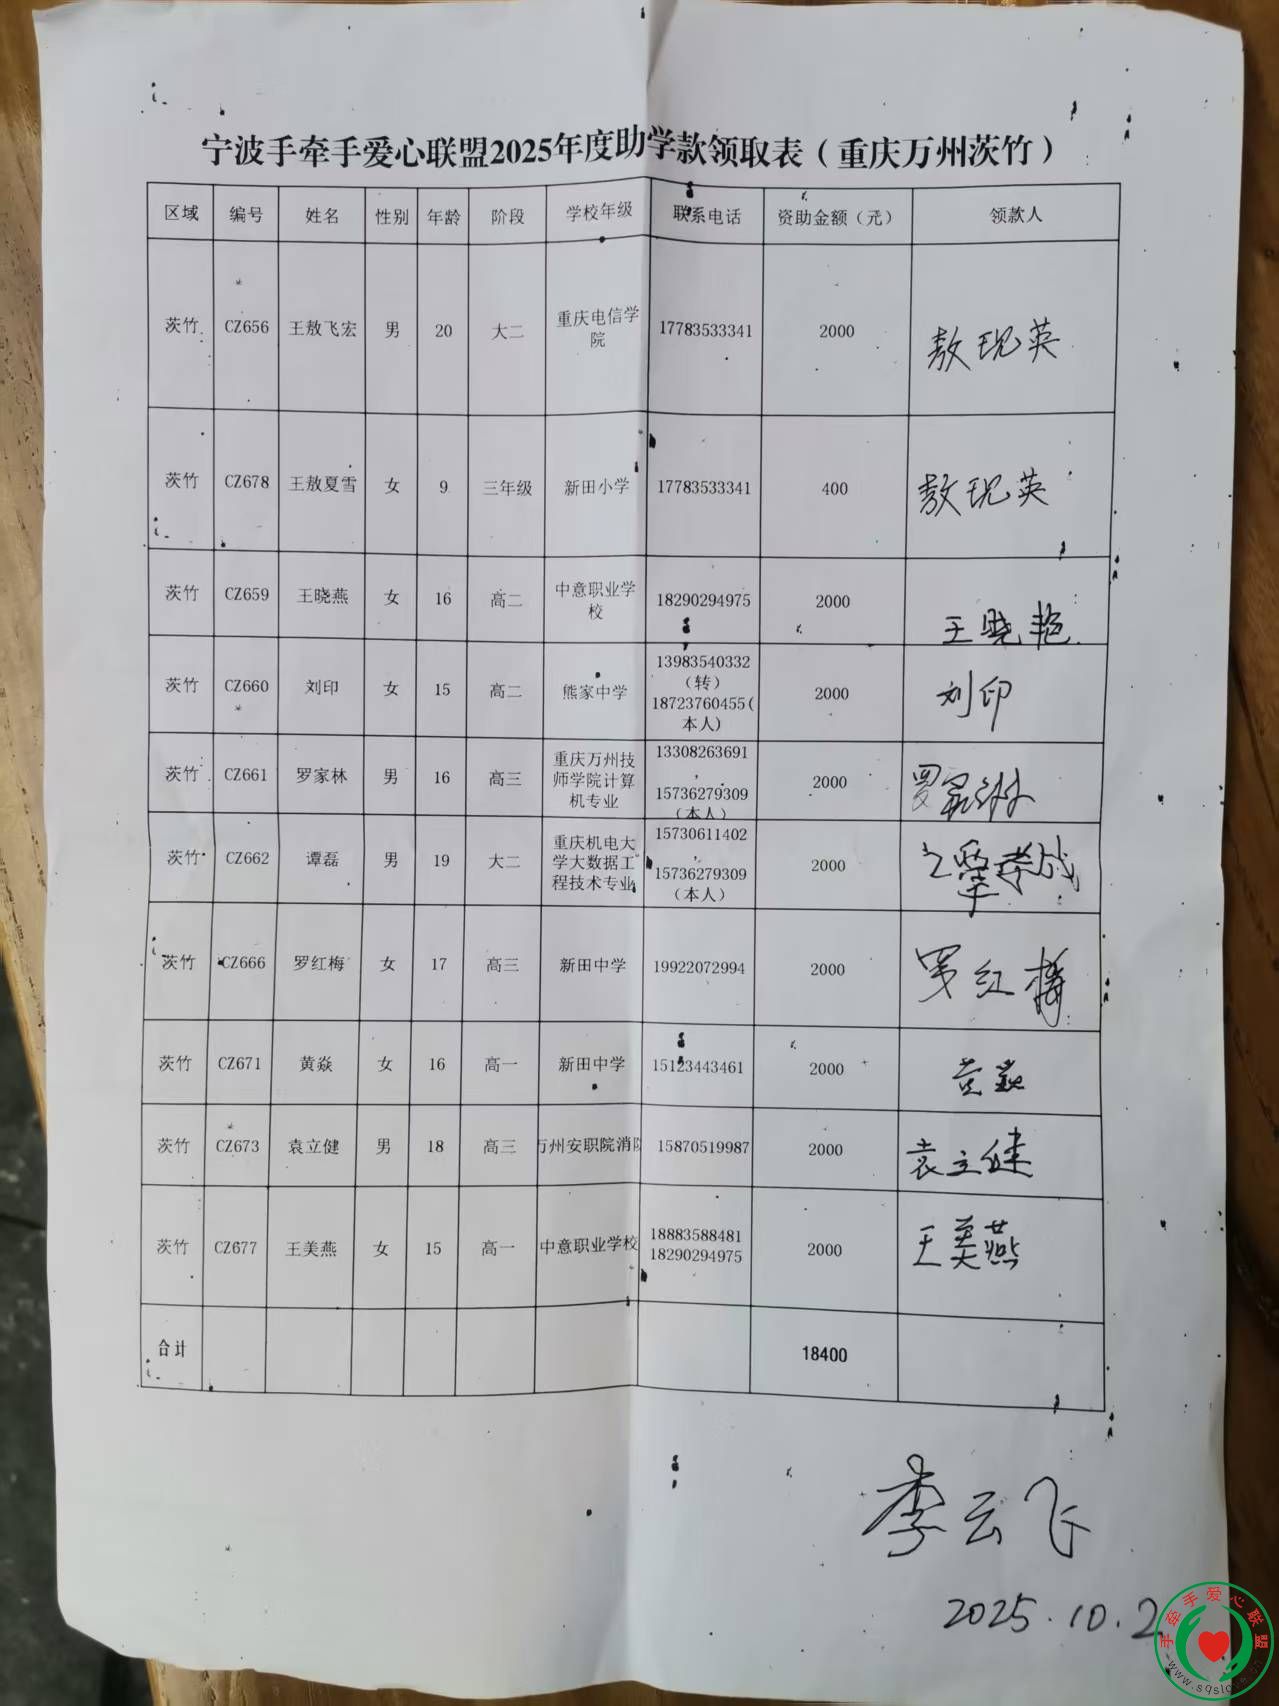 宁波手牵手爱心联盟2025年度助学款领取表（重庆万州茨竹）
区域 编号 姓名 性别 年龄 阶段 学校年级 联系电话 资助金额（元） 领款人
茨竹 CZ656 王敖飞宏 男 20 大二 重庆电信学院 17783533341 2000 敖现英
茨竹 CZ678 王敖夏雪 女 9 三年级 新田小学 17783533341 400 敖现英
茨竹 CZ659 王晓燕 女 16 高二 中意职业学校 18290294975 2000 王晓艳
茨竹 CZ660 刘印 女 15 高二 熊家中学 13983540332（转）18723760455(本人) 2000 刘印
茨竹 CZ661 罗家林 男 16 高三 重庆万州技师学院计算机专业 13308263691，15736279309（本人） 2000 罗家林
茨竹 CZ662 谭磊 男 19 大二 重庆机电大学大数据工程技术专业 15730611402，15736279309（本人） 2000
茨竹 CZ666 罗红梅 女 17 高三 新田中学 19922072994 2000 罗红梅
茨竹 CZ671 黄焱 女 16 高一 新田中学 15123443461 2000 黄焱
茨竹 CZ673 袁立健 男 18 高三 万州安职院消防 15870519987 2000 袁立健
茨竹 CZ677 王美燕 女 15 高一 中意职业学校 18883588481 18290294975 2000 王美燕
合计 18400
李云飞
2025.10.2
手牵手爱心联盟
www.sqslove.cn